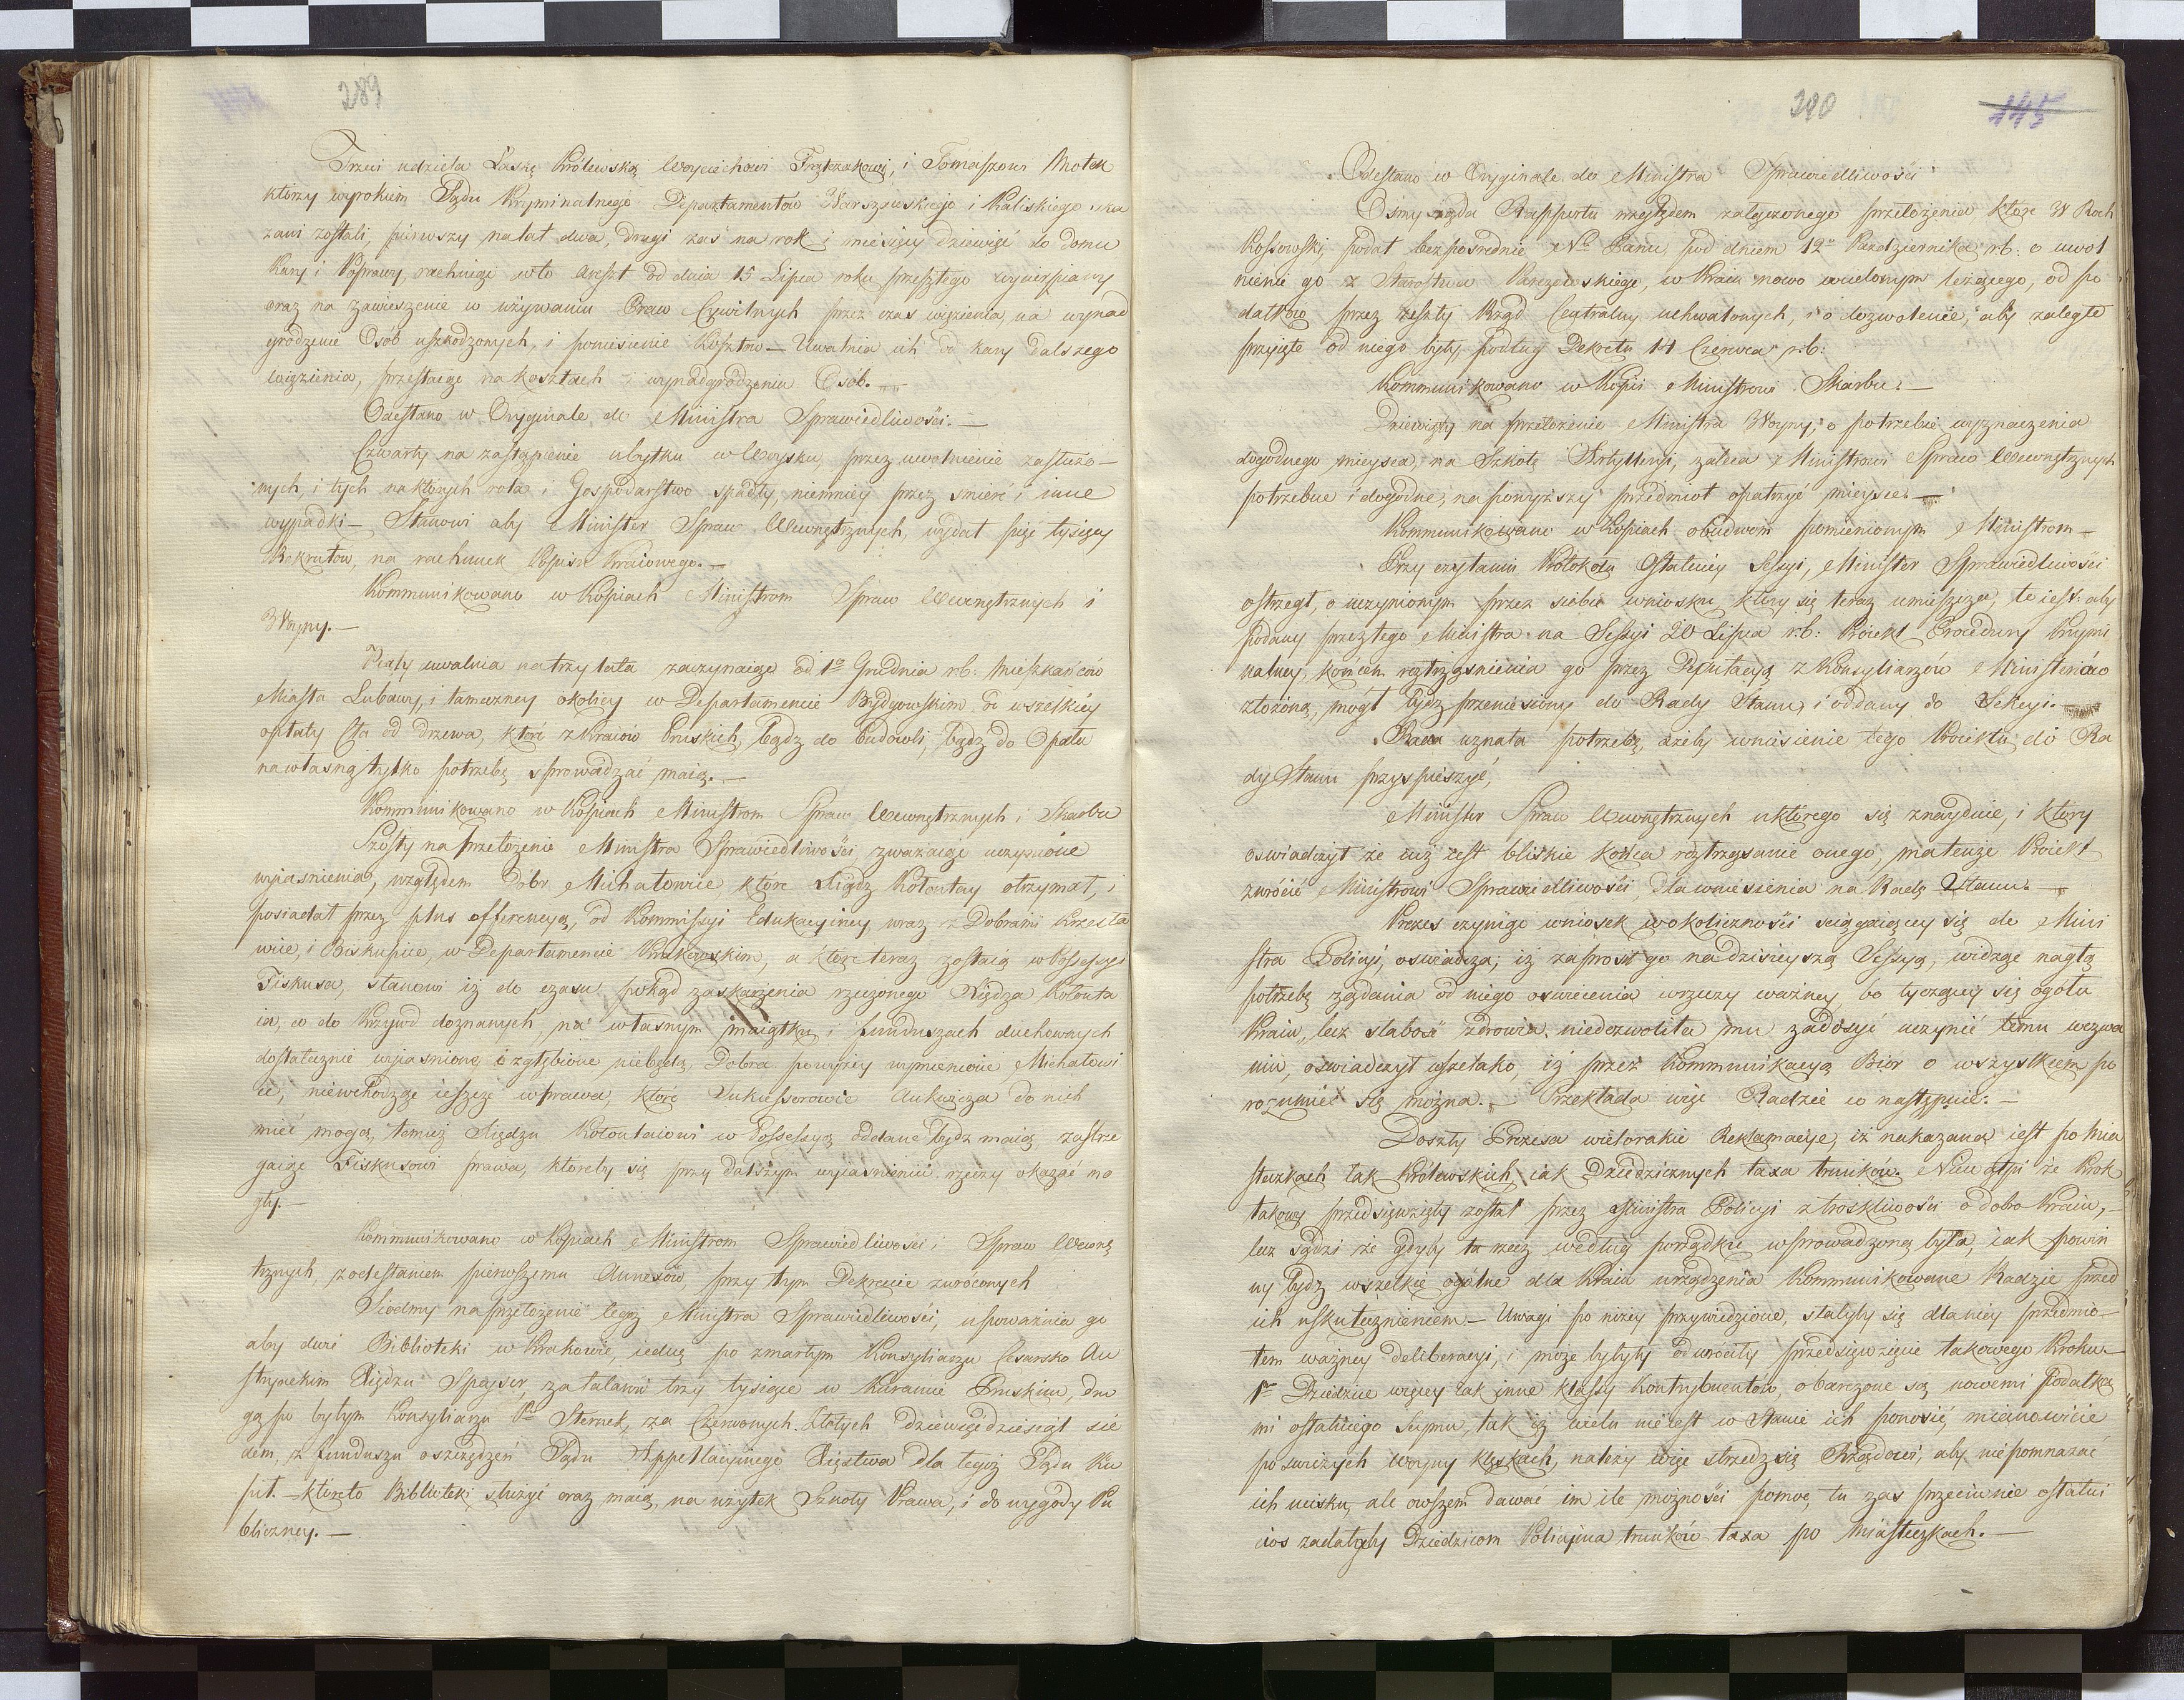 289
Trzeci udziela Łaskę Królewską Woyciechowi Frątczakowi, i Tomaszowi Motek
którzy wyrokiem Sądu Kryminalnego Departamentów Warszawskiego i Kaliskiego ska
zani zostali, pierwszy na lat dwa, drugi zaś na rok i miesięcy dziewięć do domu
Kary i Poprawy rachuiąc w to Areszt od dnia 15 Lipca roku przeszłego wycierpiany
oraz na zawieszenie w używaniu Praw Cywilnych przez czas więzienia, na wynad
grodzenie Osób uszkodzonych, i poniesienie kosztów – Uwalnia ich od kary dalszego
więzienia, przestaiąc na kosztach i wynadgrodzeniu Osób. –
Odesłano w Oryginale do Ministra Sprawiedliwości. –
Czwarty na zastąpienie ubytku w Woysku, przez uwolnienie zasłużo–
nych, i tych na których rola i Gospodarstwo spadły, niemniey przez śmierć i inne
wypadki – Stanowi aby Minister Spraw Wewnętrznych, wydał pięć tysięcy
Rekrutów, na rachunek Popisu Kraiowego. –
Kommunikowano w Kopiach Ministrom Spraw Wewnętrznych i
Woyny. –
Piąty uwalnia na trzy lata zaczynaiąc od 1º Grudnia r.b. Mieszkańców
Miasta Lubawy, i tameczney okolicy w Departamencie Bydgowskim od wszelkiey
opłaty Cła od drzewa, które z kraiów Pruskich, bądz do budowli, bądz do Opału
na własną tylko potrzebę sprowadzać maią. –
Kommunikowano w Kopiach Ministrom Spraw Wewnętrznych i Skarbu
Szósty na przełożenie Ministra Sprawiedliwości, zważaiąc uczynione
wyiaśnienia, względem Dobr Michałowice, które Xiądz Kołłontay otrzymał, i
posiadał przez plus offerencyą, od Kommissyi Edukacyiney, wraz z Dobrami Krzesła
wice, i Biskupice, w Departamencie Krakowskim, a które teraz zostaią w Possessyi
Fiskusa, stanowi iż do czasu pokąd zaskarżenia rzeczonego Xiędza Kołłonta
ia, co do Krzywd doznanych, na własnym maiątku i funduszach duchownych
dostatecznie wyiaśnione i zgłębione niebędą, Dobra powyżey wymienione Michałowi
ce, niewchodząc ieszcze w prawa, które Sukcessorowie Ankwicza do nich
mieć mogą, temuż Xiędzu Kołłontaiowi w Possessyą oddane bydz maią, zastrze
gaiąc Fiskusowi prawa, któreby się przy dalszym wyiaśnieniu rzeczy okazać mo
gły. –
Kommunikowano w Kopiach Ministrom Sprawiedliwości i Spraw Wewnę
trznych, z odesłaniem pierwszemu Annexów przy tym Dekrecie zwróconych
Siódmy na przełożenie tegoż Ministra Sprawiedliwości, upoważnia go
aby dwie Biblioteki w Krakowie, iednę po zmarłym Konsyliarzu Cesarsko Au
stryackim Xiędzu Spayser, za talarów trzy tysiące w Kurancie Pruskim, dru
gą po byłym Konsyliarzu Pu Sternek, za Czerwonych Złotych dziewięćdziesiąt sie
dem, z funduszu oszczędzeń Sądu Appellacyinego Xięstwa dla tegoż Sądu Ku
pił. – któreto Biblioteki służyć oraz maią, na użytek Szkoły Prawa, i do wygody Pu
bliczney. –
290
145
Odesłano w Oryginale do Ministra Sprawiedliwości
Ósmy żąda Rapportu względem załączonego przełożenia które W Roch
Kossowski podał bezpośrednie Nu Panu pod dniem 12º Października r.b: o uwol
nienie go z Starostwa Parczewskiego, w Kraiu nowo wcielonym leżącego, od po
datków przez zeszły Rząd Centralny uchwalonych, i o dozwolenie, aby zaległe
przyięte od niego były podług Dekretu 14 Czerwca r.b:
Kommunikowano w Kopii Ministrowi Skarbu. –
Dziewiąty na przełożenie Ministra Woyny, o potrzebie wyznaczenia
dogodnego mieysca, na Szkołę Artylleryi, zaleca Ministrowi Spraw Wewnętrznych
potrzebne i dogodne, na powyższy przedmiot opatrzyć mieysce. –
Kommunikowano w Kopiach obudwom pomienionym Ministrom –
Przy czytaniu Protokółu Ostatniey Sessyi, Minister Sprawiedliwości
ostrzegł, o uczynionym przez siebie wniosku, który się teraz umieszcza, to iest: aby
podany przez tego Ministra na Sessyi 20 Lipca r.b: Proiekt Procedury Krymi
nalney, końcem roztrząśnienia go przez Deputacyą z Konsyliarzów Ministeriów
złożoną, mógł bydz przeniesiony do Rady Stanu, i oddany do Sekcyi. –
Rada uznała potrzebę, ażeby wniesienie tego Proiektu do Ra
dy Stanu przyspieszyć,
Minister Spraw Wewnętrznych u którego się znayduie, i który
oświadczył że iuż iest bliskie końca roztrząsanie onego, ma tenże Proiekt
zwrócić Ministrowi Sprawiedliwości, dla wniesienia na Radę Stanu. –
Prezes czyniąc wniosek w okoliczności ściągaiącey się do Mini
stra Policyi, oświadcza; iż zaprosił go na dzisieyszą Sessyą, widząc nagłą
potrzebę żądania od niego oświecenia w rzeczy ważney, bo tyczącey się ogółu
Kraiu, lecz słabość zdrowia niedozwoliła mu zadosyć uczynić temu wezwa
niu, oświadczył wszelako, iż przez Kommunikacyą Biór o wszystkiem po
rozumieć się można. – Przekłada więc Radzie co następuie: –
Doszły Prezesa wielorakie Reklamacye, iż nakazaną iest po Mia
steczkach tak Królewskich, iak Dziedzicznych taxa trunków. Nie wątpi że Krok
takowy przedsięwzięty został przez Ministra Policyi z troskliwości o dobro Kraiu, –
lecz sądzi że gdyby ta rzecz według porządku wprowadzoną była, iak powin
ny bydz wszelkie ogólne dla Kraiu urządzenia Kommunikowane Radzie przed
ich uskutecznieniem – Uwagi po niżey przywiedzione, stałyby się dla niey przedmio–
tem ważney deliberacyi, i może byłyby odwróciły przedsięwzięcie takowego Kroku –
1º Dziedzice więcey iak inne klassy Kontrybuentów, obarczone są nowemi Podatka
mi ostatniego Seymu, tak iż wielu nie iest w Stanie ich ponosić, mianowicie
po świeżych woyny klęskach, należy więc strzedz się Rządowi, aby nie pomnażać
ich ucisku, ale owszem dawać im ile możności pomoc, tu zaś przeciwnie ostatni
cios zadałyby Dziedzicom Policyina trunków taxa po Miasteczkach. –